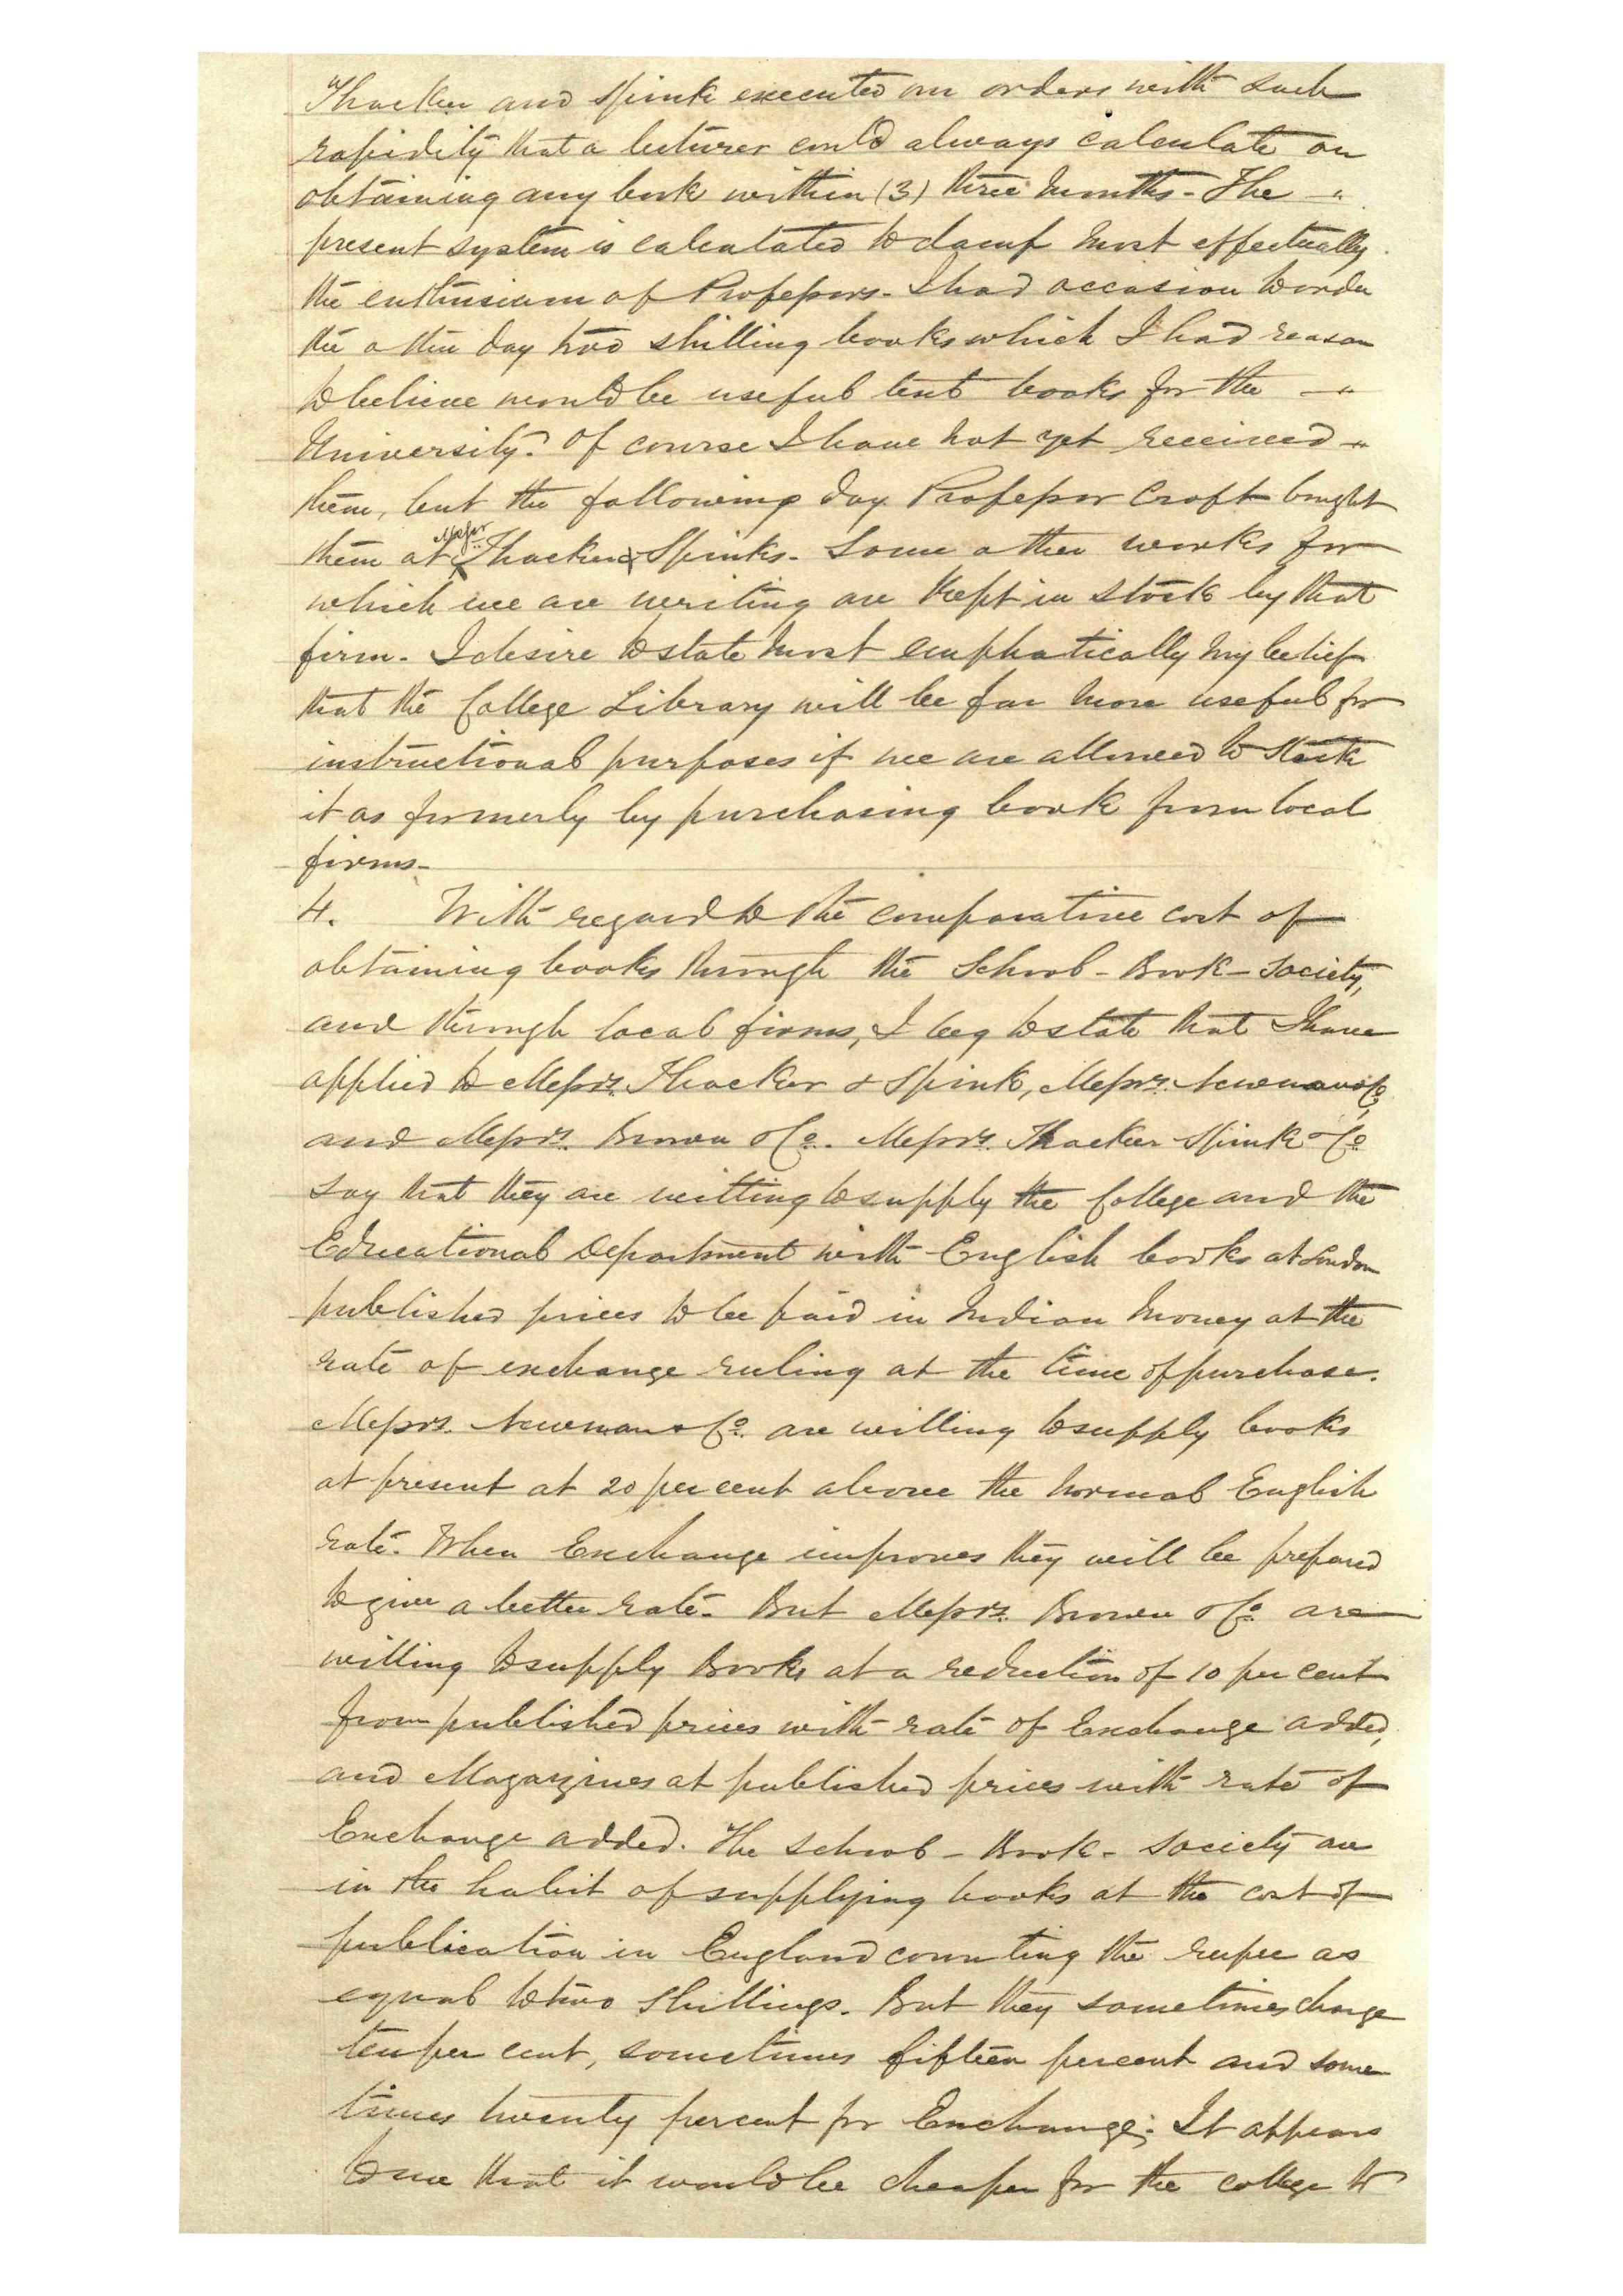 Thacker and Spink executed our orders with such
rapidity that a lecturer could always calculate on
obtaining any book within (3) three months - The - "
present system is calculated to damp most effectually
the enthusiasm of Professors - I had occasion to order
the other day two shilling books which I had reason
to believe would be useful text books for the - "
University. Of course I have not yet received - "
them, but the following day Professor Croft bought
them at Messrs Thacker & Spinks - Some other works for
which we are writing are kept in stock by that
firm - I desire to state most emphatically my belief
that the College Library will be far more useful for
instructional purposes if we are allowed to stock
it as formerly by purchasing book from local
firms -
4. With regard to the comparative cost of
obtaining books through the School - Book - Society,
and through local firms, I beg to state that I have
applied to Messrs. Thacker & Spink, Messrs. Newman & Co,
and Messrs. Brown & Co. Messrs. Thacker Spink & Co
say that they are willing to supply the College and the
Educational Department with English books at London
published prices to be paid in Indian money at the
rate of exchange ruling at the time of purchase.
Messrs. Newman & Co. are willing to supply books
at present at 20 per cent above the normal English
rate. When Exchange improves they will be prepared
to give a better rate. But Messrs. Brown & Co. are
willing to supply Books at a reduction of 10 per cent
from published prices with rate of Exchange added,
and Magazines at published prices with rate of
Exchange added. The School - Book - Society are
in the habit of supplying books at the cost of
publication in England counting the rupee as
equal to two shillings. But they sometimes charge
ten per cent, sometimes fifteen percent and some
times twenty percent for Exchange; It appears
to me that it would be cheaper for the college to